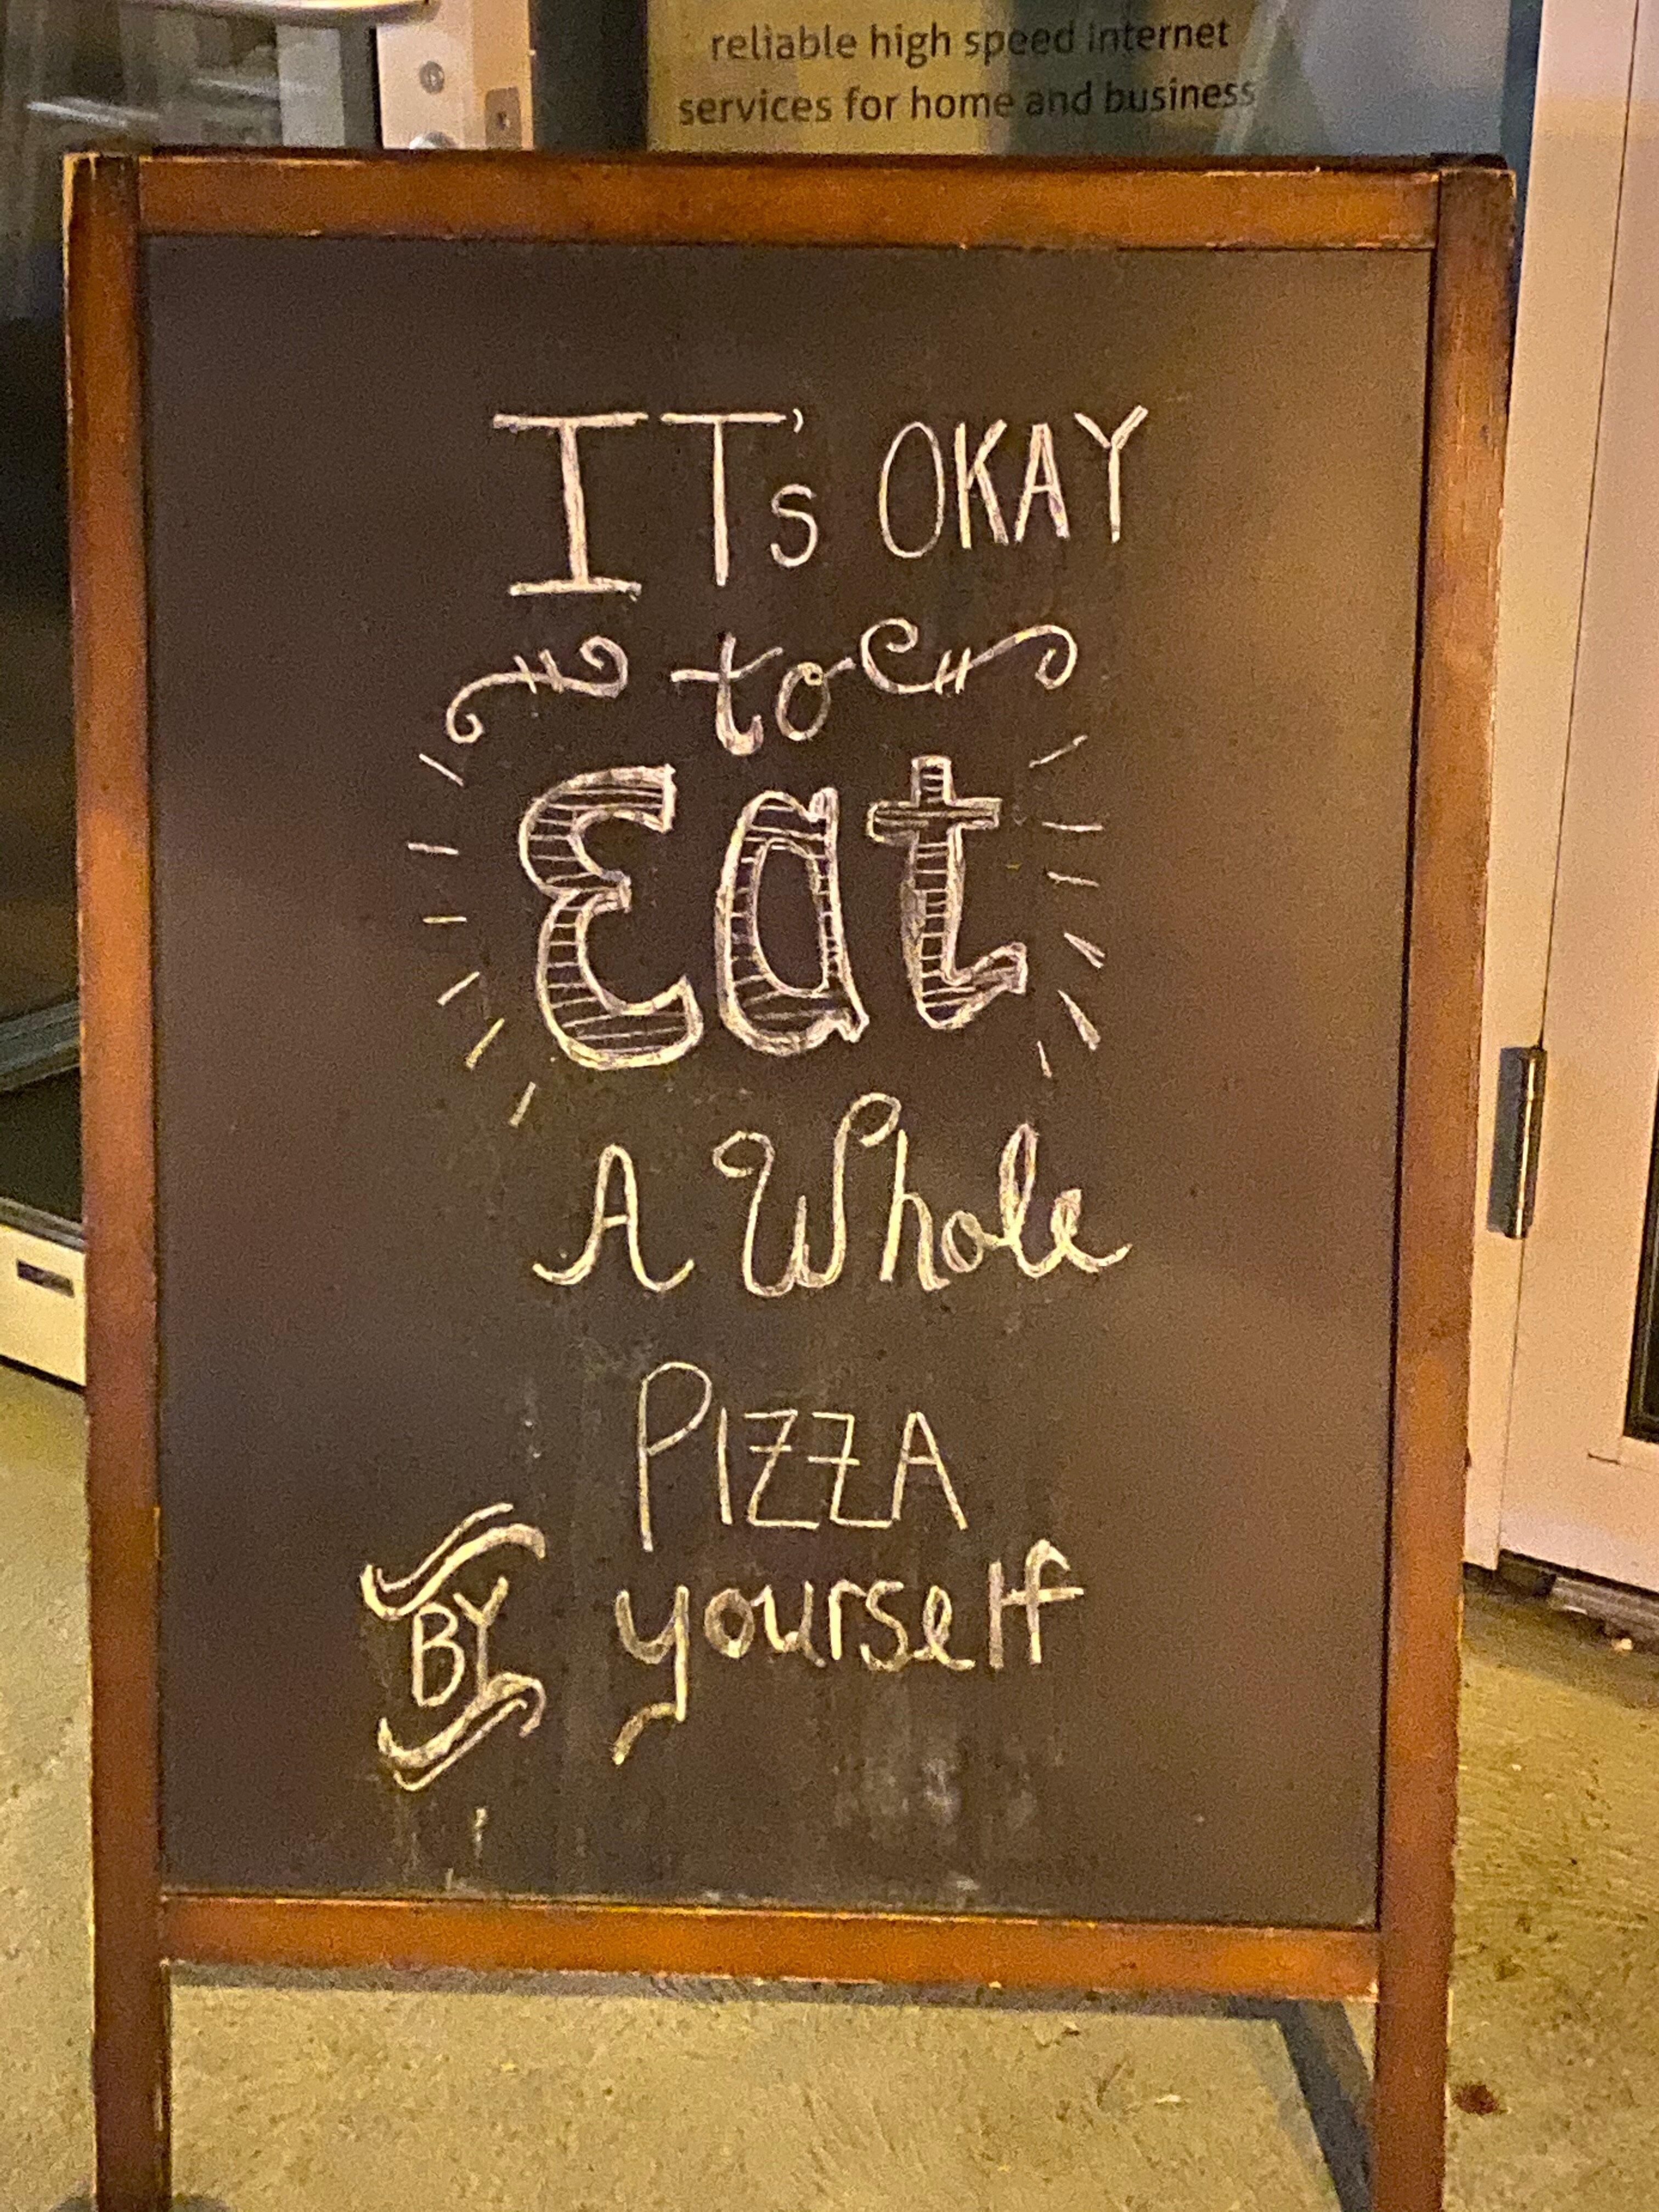 reliable high speed internet
services for home and business
IT's OKAY
to
Eat
A Whole
PIZZA
BY yourself